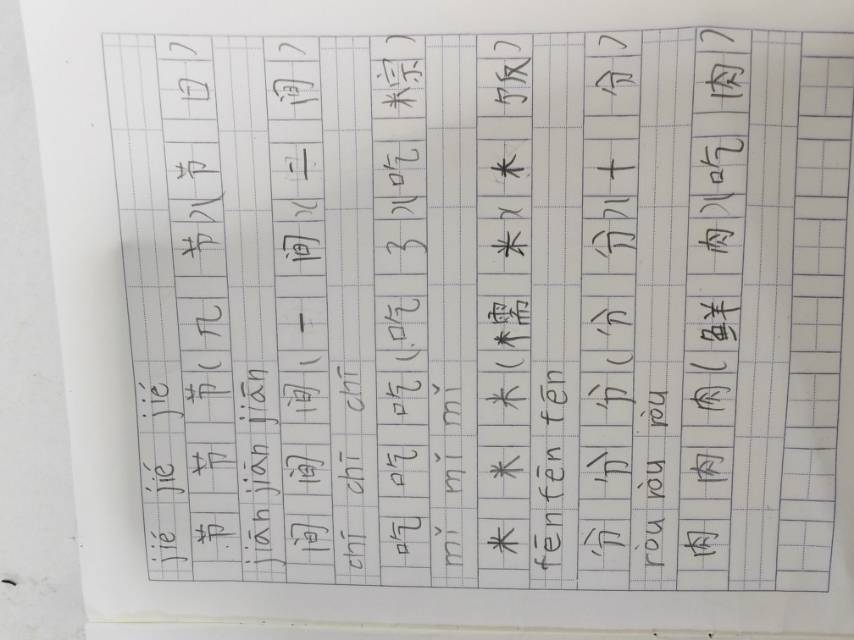 jié jié jié
节 节 节(几 节)(节 日)
jiān jiān jiān
间 间 间(一 间)(二 间)
chī chī chī
吃 吃 吃(吃 了)(吃 粽)
mǐ mǐ mǐ
米 米 米(糯 米)(米 饭)
fēn fēn fēn
分 分 分(分 分)(十 分)
ròu ròu ròu
肉 肉 肉(鲜 肉)(吃 肉)